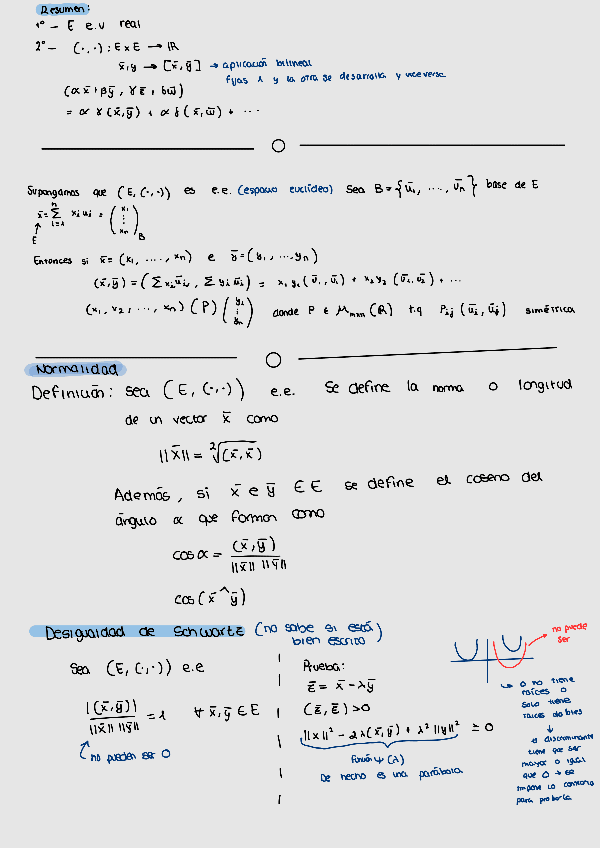 Resumen:
1º - E e.v real
2º - (·,·): E x E → IR
x̄,y → [x̄,ȳ] → aplicación bilineal
fijas 1 y la otra se desarrolla y viceversa
(αx̄ + βȳ, γz̄ + δω̄)
= αγ(x̄,ȳ) + αδ(x̄,ω̄) + ...
Supongamos que (E,(·,·)) es e.e. (espacio euclídeo) Sea B = {ū₁, ..., ūₙ} base de E
x̄ = Σ xᵢ uᵢ = (x₁ ⋮ xₙ)B
E
Entonces si x̄ = (x₁, ..., xₙ) e ȳ = (y₁, ..., yₙ)
(x̄,ȳ) = (Σ xᵢūᵢ, Σ yᵢūᵢ) = x₁y₁(ū₁,ū₁) + x₁y₂(ū₁,ū₂) + ...
(x₁, x₂, ..., xₙ)(P)(y₁ ⋮ yₙ) donde P ∈ Mₘₓₙ(R) t.q Pᵢⱼ(ūᵢ,ūⱼ) simétrica
Normalidad
Definición: sea (E,(·,·)) e.e. Se define la norma o longitud
de un vector x̄ como
||x̄|| = ²√(x̄,x̄)
Además, si x̄ e ȳ ∈ E se define el coseno del
ángulo α que forman como
cos α = (x̄,ȳ) / ||x̄|| ||ȳ||
cos(x̄^ȳ)
Desigualdad de Schwartz (no sabe si está
bien escrito)
Sea (E,(·,·)) e.e
|(x̄,ȳ)| / ||x̄|| ||ȳ|| = 1 ∀ x̄,ȳ ∈ E
no pueden ser 0
Prueba:
z̄ = x̄ - λȳ
(z̄,z̄) > 0
||x||² - 2λ(x̄,ȳ) + λ²||y||² ≥ 0
función ψ(λ)
De hecho es una parábola
no puede
ser
o no tiene
raíces o
solo tiene
raíces dobles
el discriminante
tiene que ser
mayor o igual
que 0 → se
impone lo contrario
para probarla